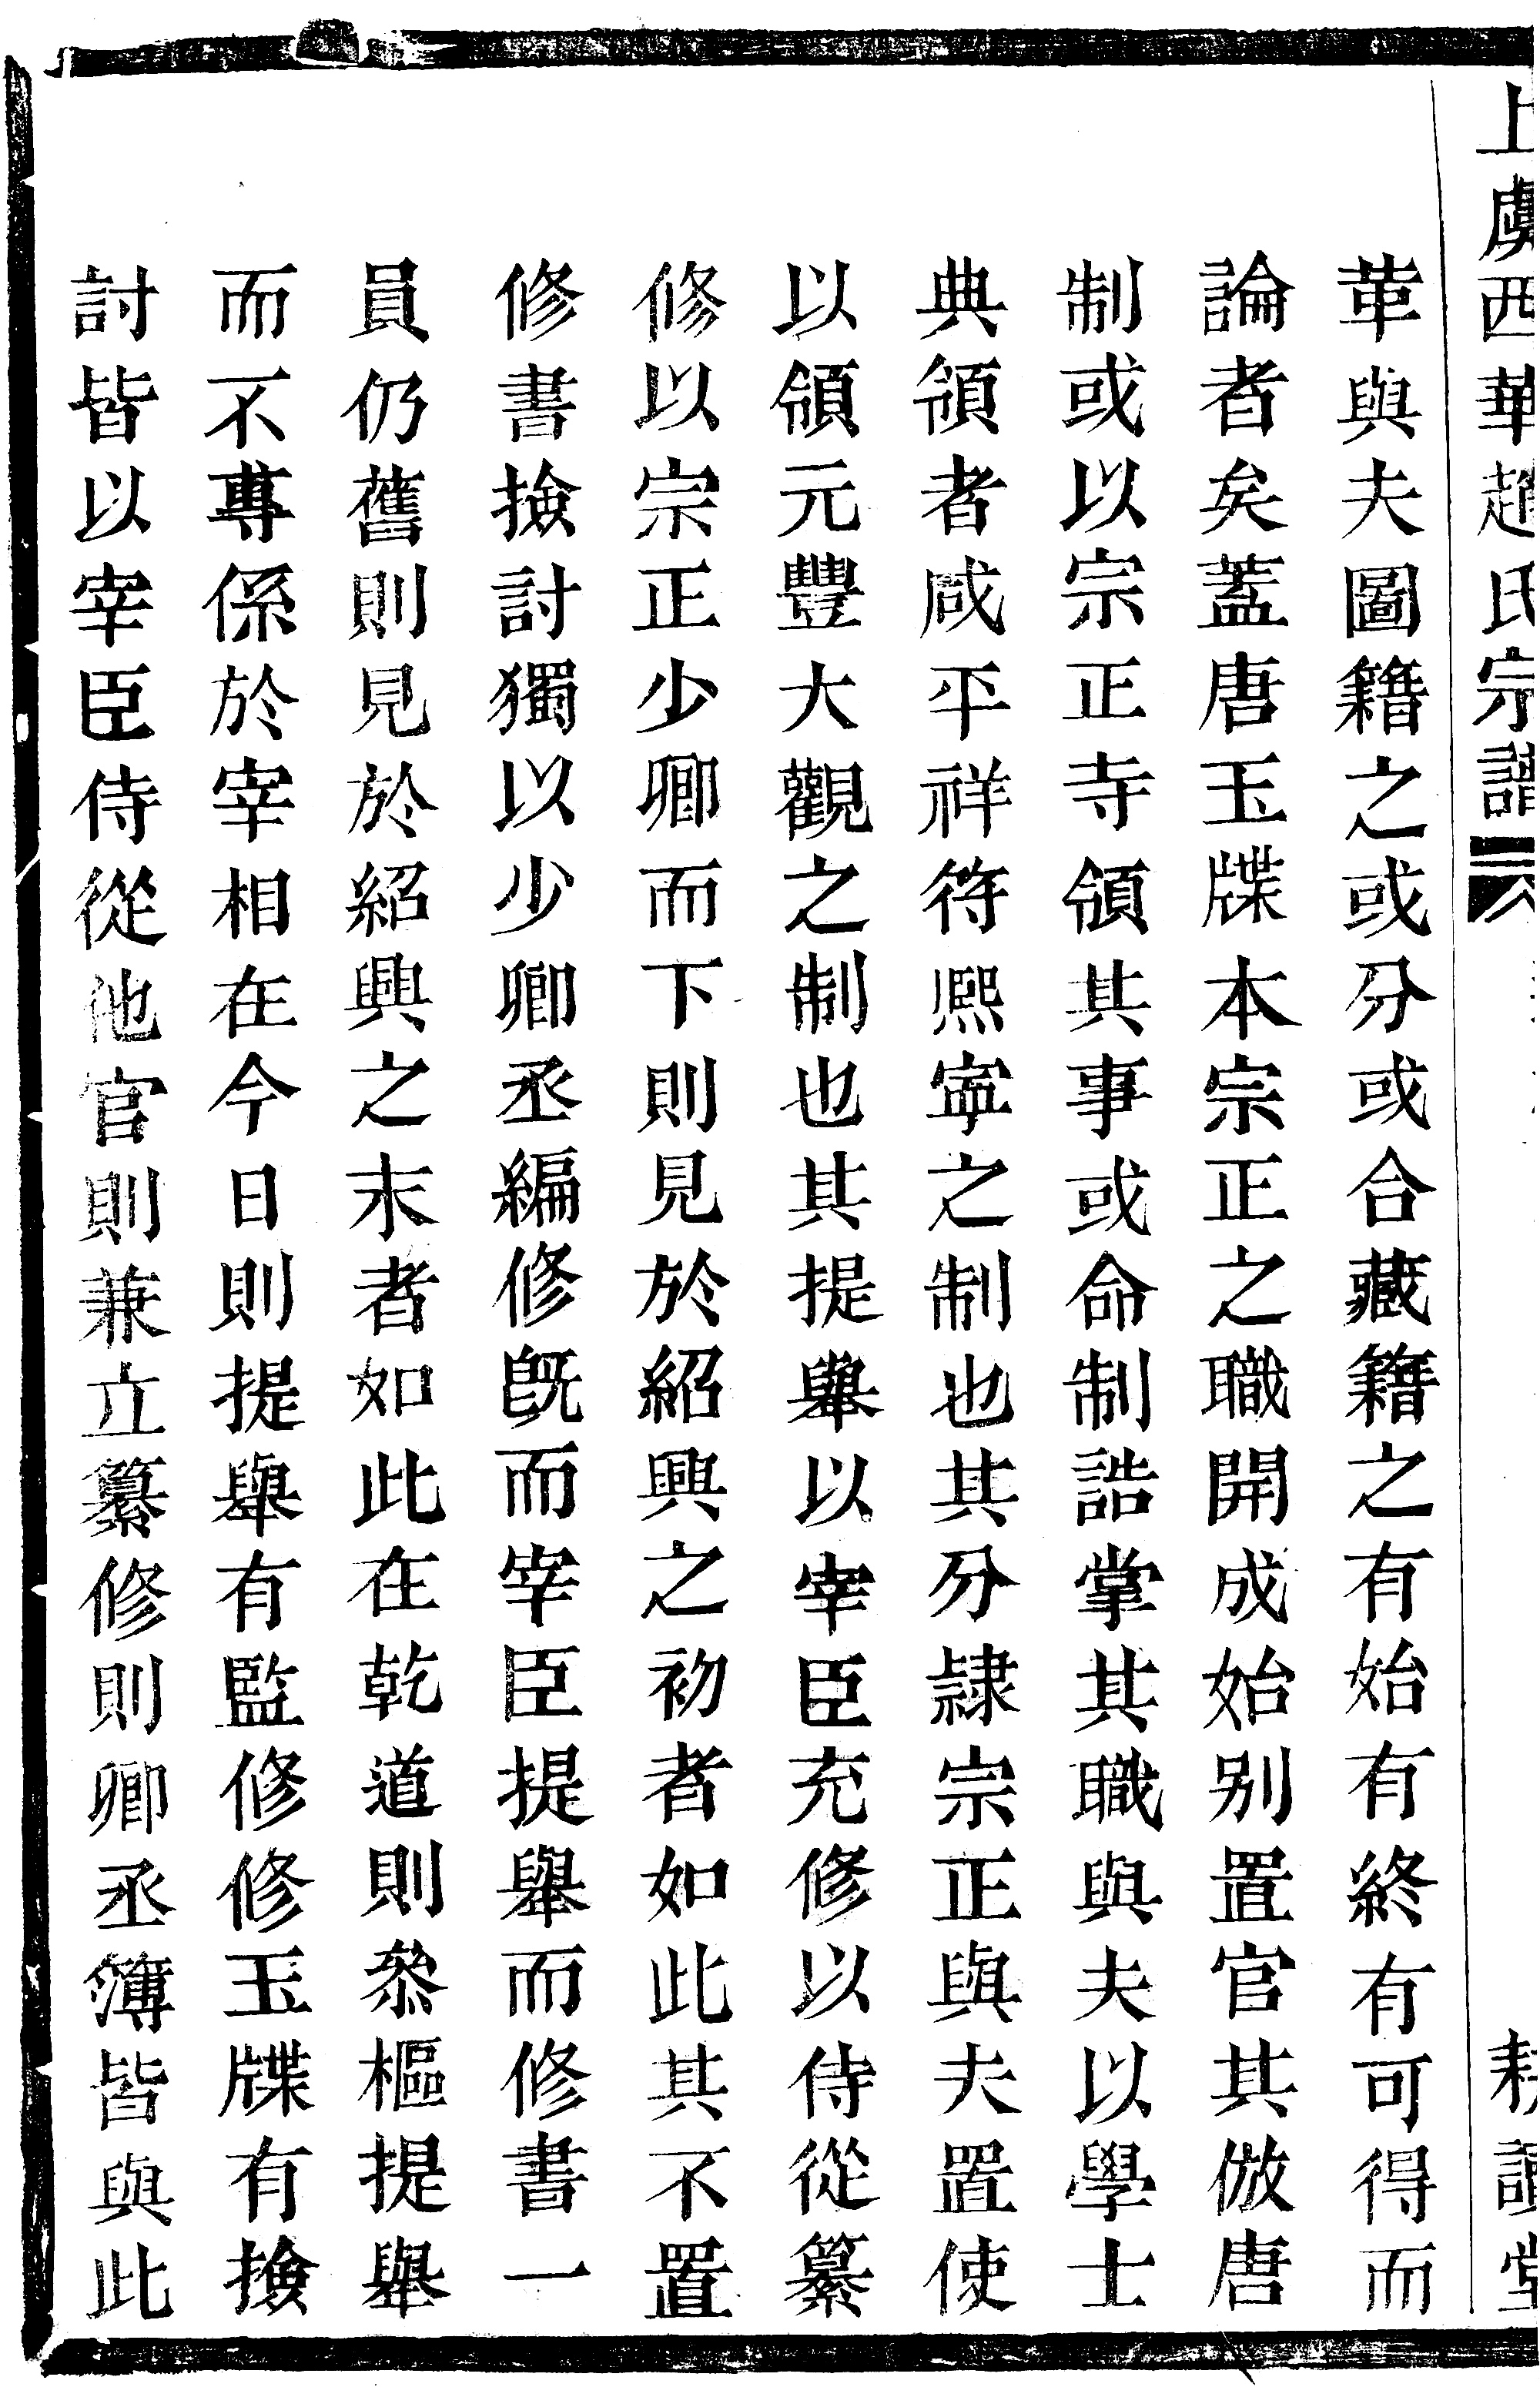 上虞西華趙氏宗譜
耕讀堂
革與夫圖籍之或分或合藏籍之有始有終有可得而
論者矣蓋唐玉牒本宗正之職開成始別置官其倣唐
制或以宗正寺領其事或命制誥掌其職與夫以學士
典領者咸平祥符熙寧之制也其分隸宗正與夫置使
以領元豐大觀之制也其提舉以宰臣充修以侍從纂
修以宗正少卿而下則見於紹興之初者如此其不置
修書撿討獨以少卿丞編修旣而宰臣提舉而修書一
員仍舊則見於紹興之末者如此在乾道則叅樞提舉
而不専係於宰相在今日則提舉有監修修玉牒有撿
討皆以宰臣侍從他官則兼立纂修則卿丞簿皆與此